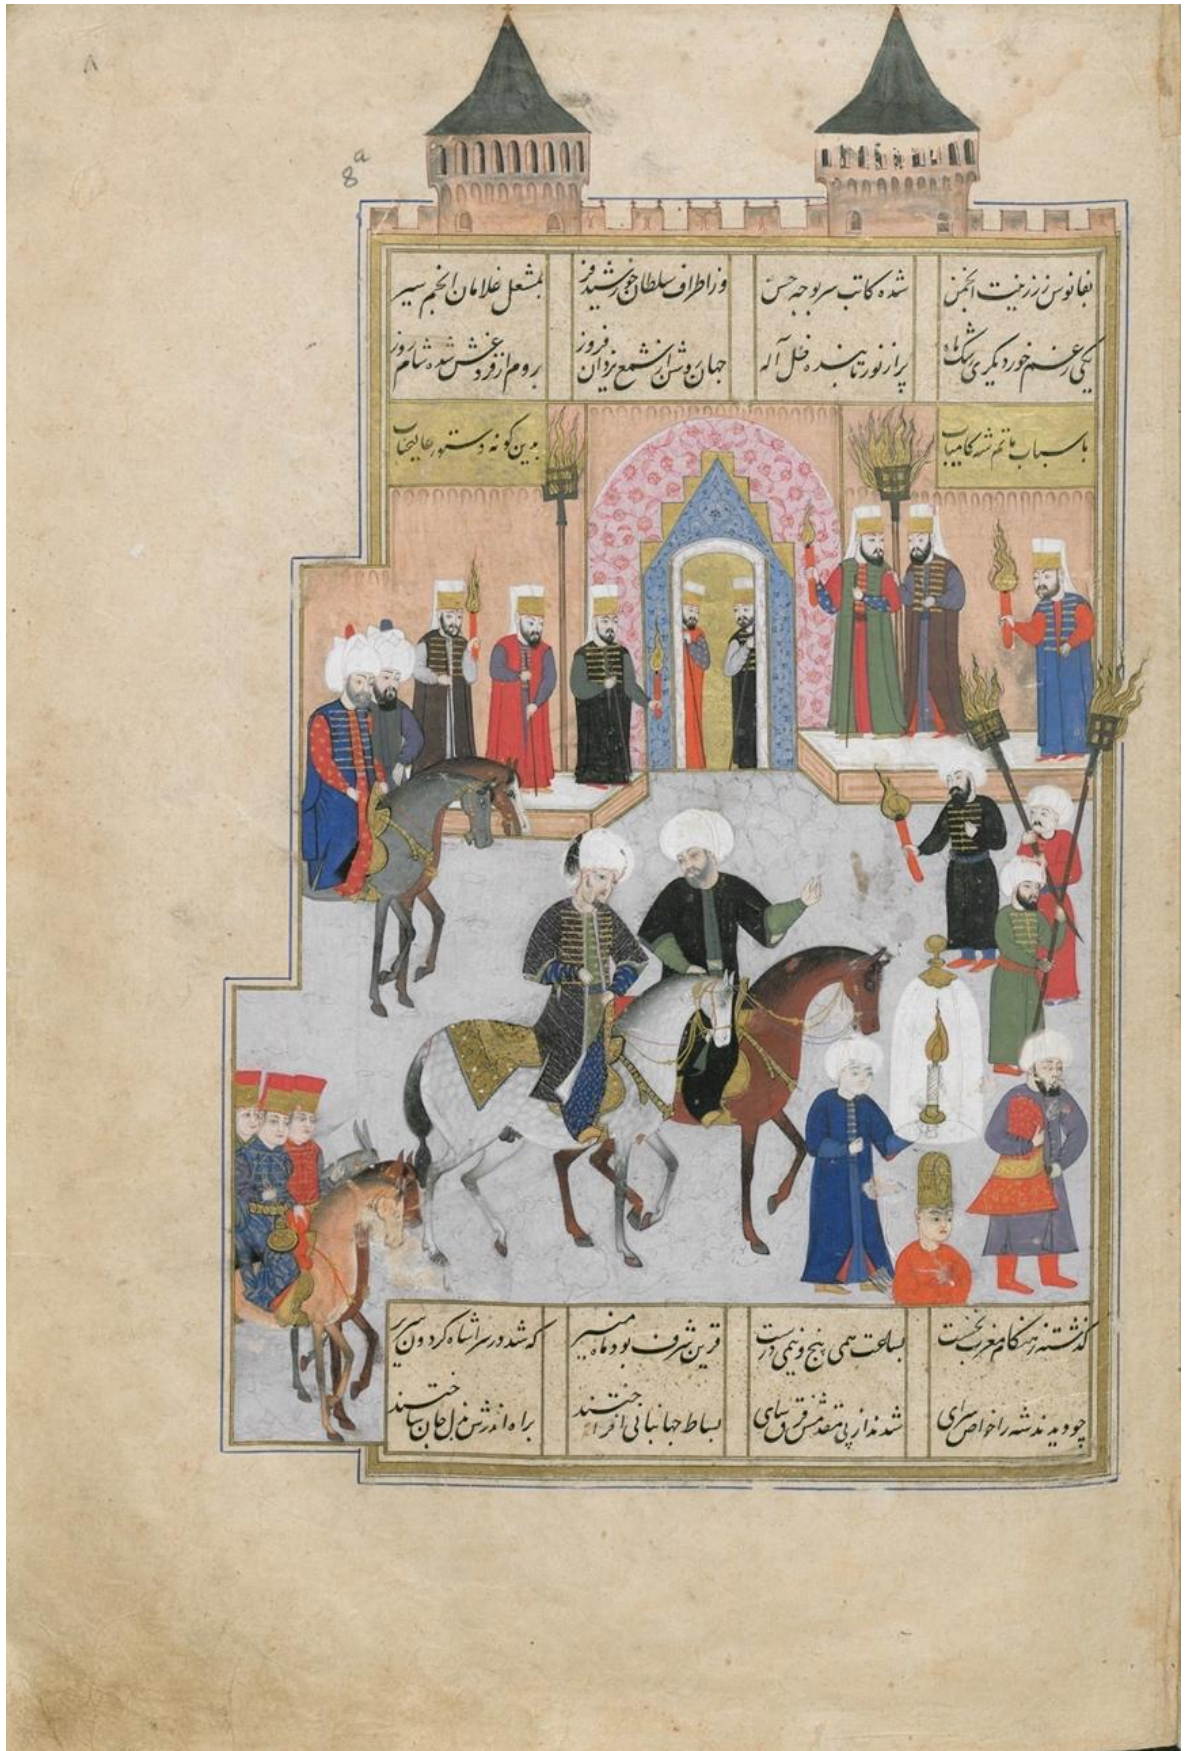 ٨
8a
بفانوس زر زینت انجمن شده کاتب سر بوجه حسن وز اطراف سلطان خورشید فر بمشعل غلامان انجم سیر
یکی رغم خور دیگری رشک ماه پر از نور تابنده ظل آله جهان روشن از شمع یزدان فروز بروم از فروغش شده شام روز
باسباب ماتم شه کامیاب بدین گونه دستور عالیجناب
گذشته ز هنگام مغرب نخست بساعت همی پنج و نیمی درست قرین شرف بود ماه منیر که شد در سرا شاه گردون سریر
چو دیدند شه را خواص سرای شدند از پی مقدمش فرق سای بساط جهانبانی افراختند براه اندرش بذل جان ساختند